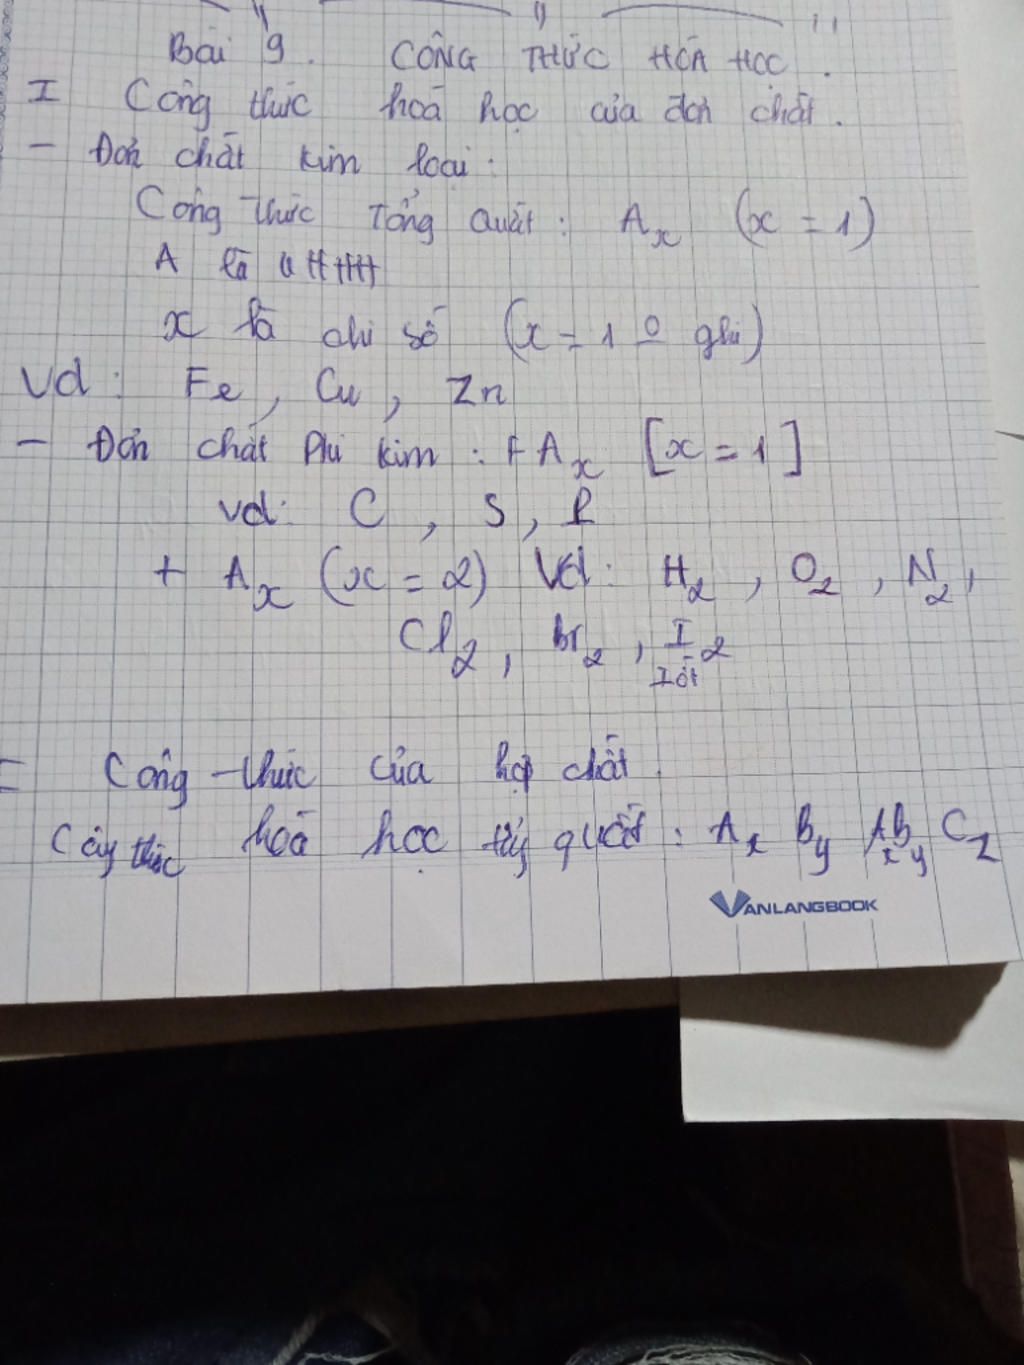 Bài 9. CÔNG THỨC HÓA HỌC.
I Công thức hoá học của đơn chất.
- Đơn chất kim loại:
Công thức Tổng quát: Aₓ (x = 1)
A là KHHH
x là chỉ số (x = 1 0 ghi)
Vd: Fe, Cu, Zn
- Đơn chất Phi kim: + Aₓ [x = 1]
vd: C, S, P
+ Aₓ (x = 2) Vd: H₂, O₂, N₂,
Cl₂, Br₂, I₂
Iốt
Công thức của hợp chất.
thức hoá học quát: Aₓ Bᵧ AₓBᵧ C_z
VANLANGBOOK